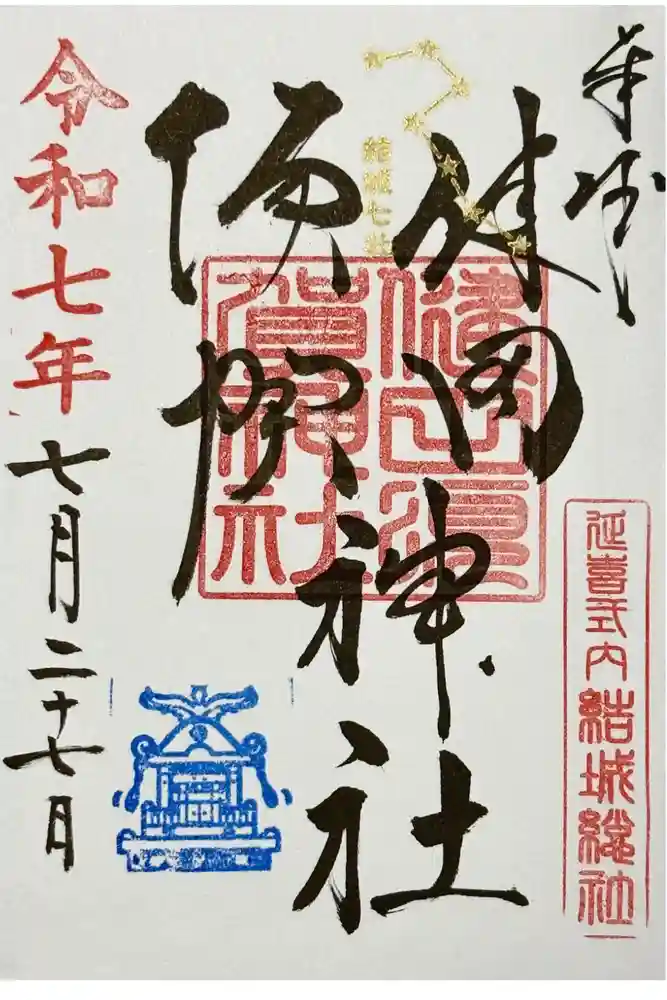 奉拝
延喜式内結城総社
結城七社
健田
須賀
神社
健田須
賀神社
令和七年七月二十七日